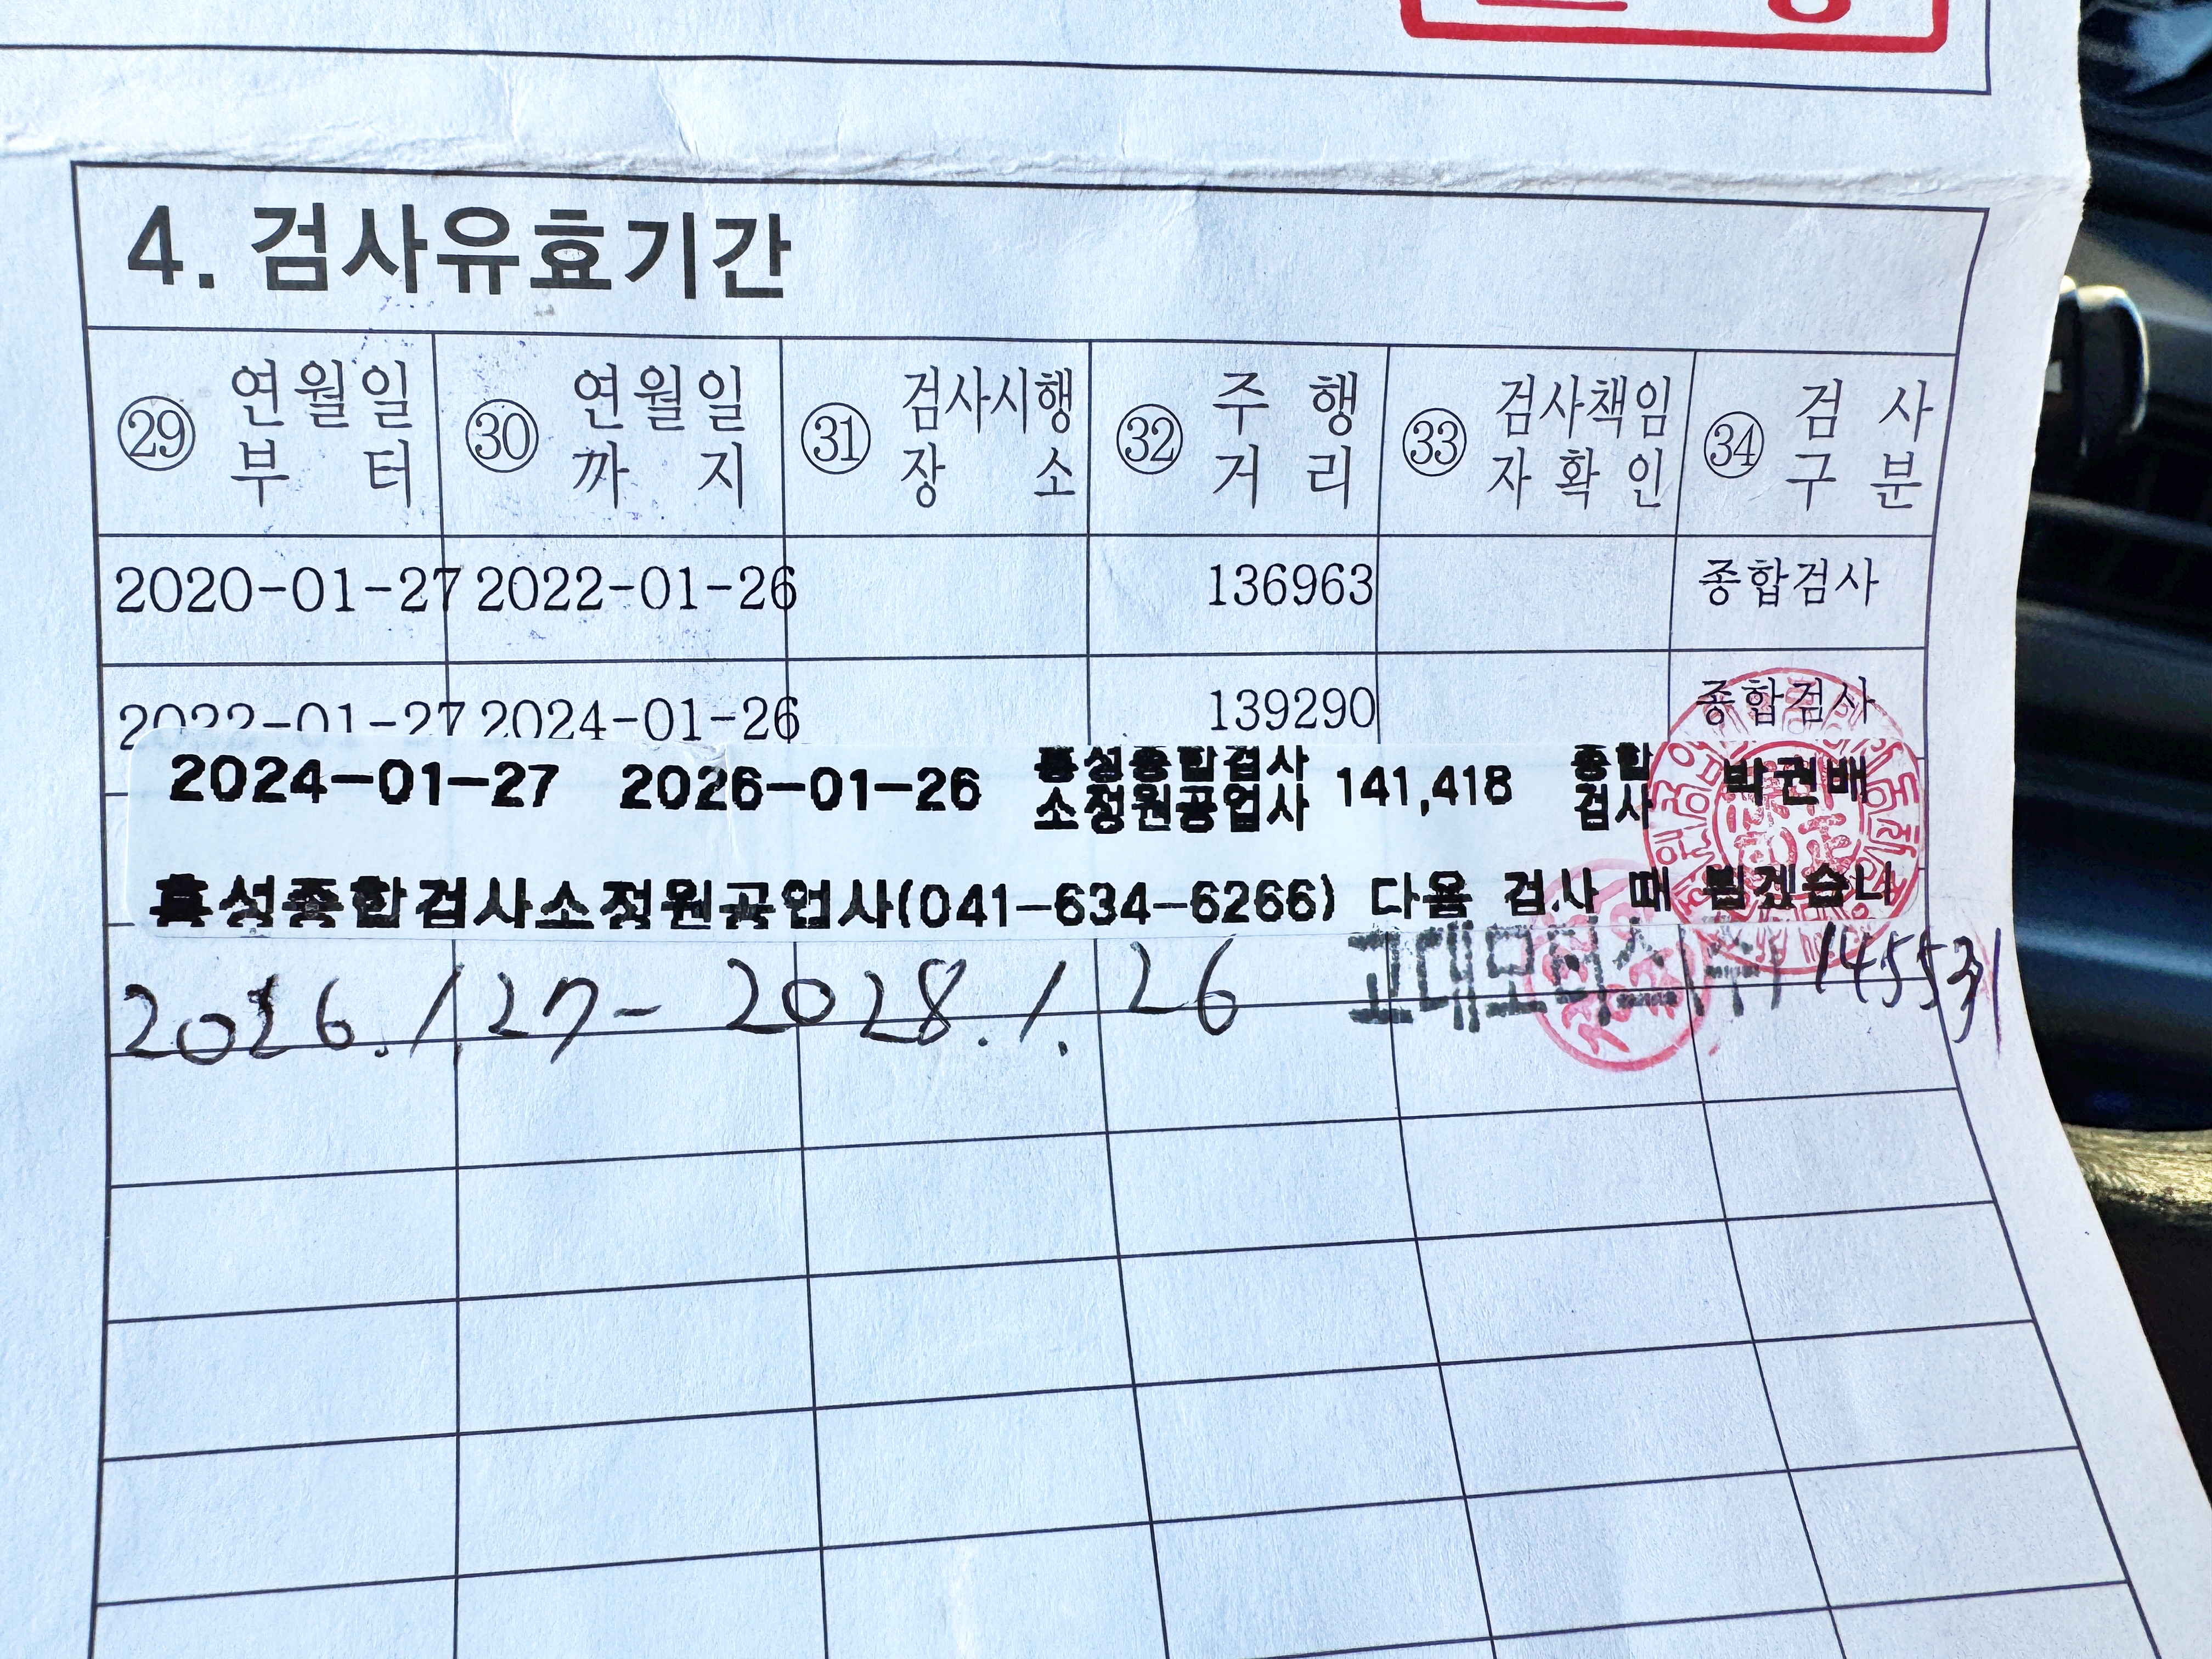 4. 검사유효기간
㉙ 연월일부터 ㉚ 연월일까지 ㉛ 검사시행장소 ㉜ 주행거리 ㉝ 검사책임자확인 ㉞ 검사구분
2020-01-27 2022-01-26 136963 종합검사
2022-01-27 2024-01-26 139290 종합검사
2024-01-27 2026-01-26 홍성종합검사소정원공업사 141,418 종합검사 박권배
홍성종합검사소정원공업사(041-634-6266) 다음 검사 때 뵙겠습니
2026. 1. 27 - 2028. 1. 26 고대모터스(주)